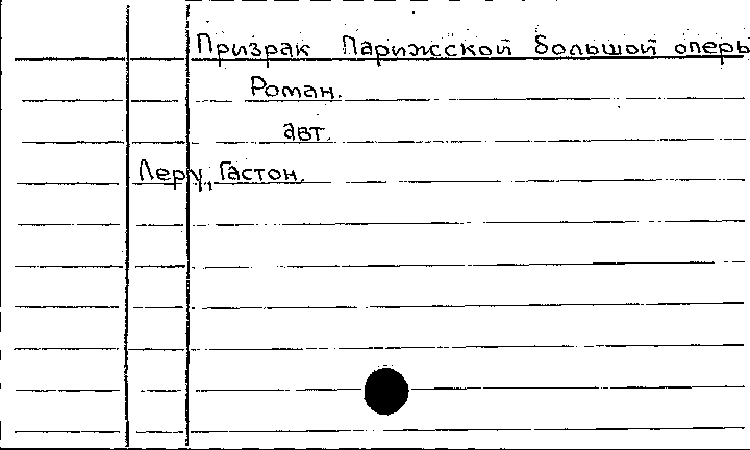 Призрак Парижсской большой оперы
Роман.
авт.
Леру, Гастон.